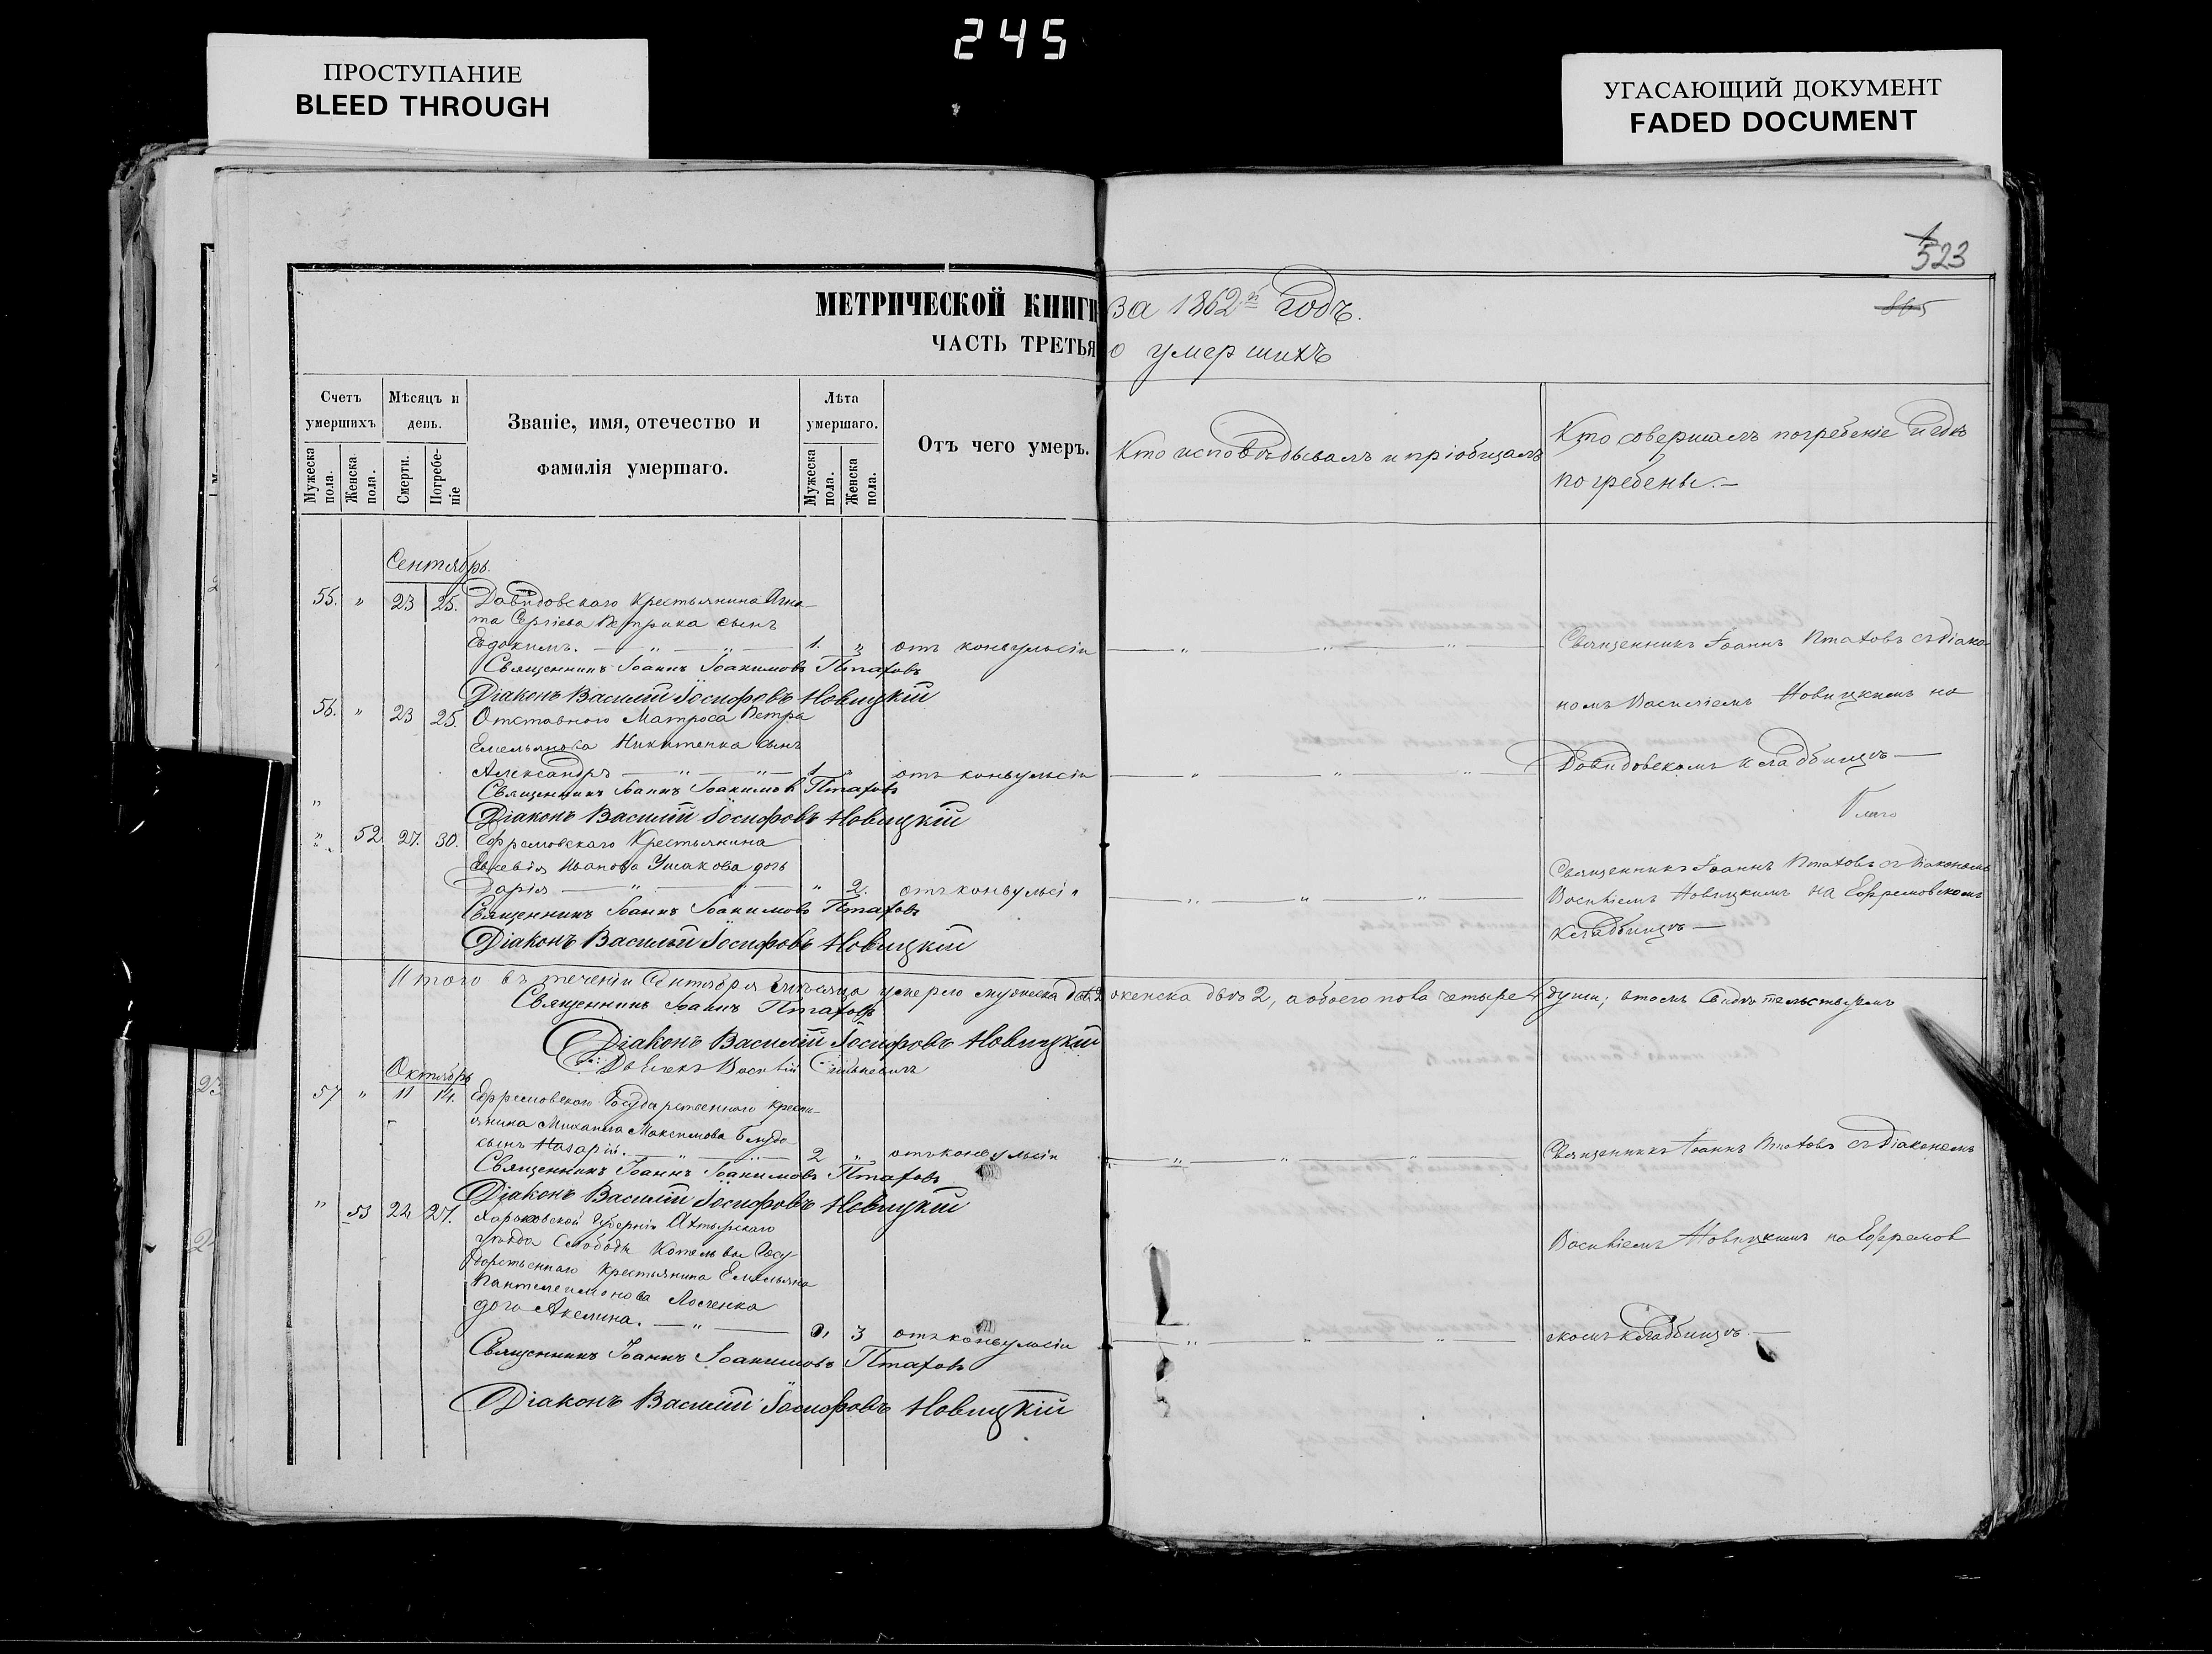 245
ПРОСТУПАНИЕ
BLEED THROUGH
УГАСАЮЩИЙ ДОКУМЕНТ
FADED DOCUMENT
523
865
МЕТРИЧЕСКОЙ КНИГИ за 1862й годъ.
ЧАСТЬ ТРЕТЬЯ о умершихъ
Счетъ умершихъ
Мужеска пола.
Женска пола.
Мѣсяцъ и день.
Смерти.
Погребеніе
Званіе, имя, отечество и фамилія умершаго.
Лѣта умершаго.
Мужеска пола.
Женска пола.
Отъ чего умеръ.
Кто исповѣдывалъ и пріобщалъ
Кто совершалъ погребеніе и гдѣ
погребены.
Сентябрь.
55. " 23 25. Давидовскаго Крестьянина Игна-
та Сергіева Петрика сынъ
Евдокимъ. — " — " — 1. " отъ конвульсіи — " — " — " — Священникъ Іоаннъ Птаховъ съ Діако-
Священникъ Іоаннъ Іоакимовъ Птаховъ
Діаконъ Василій Іосифовъ Новицкій
номъ Василіемъ Новицкимъ на
56. " 23 25. Отставного Матроса Петра
Емельянова Никитенка сынъ
Александръ — " — " — 1 " отъ конвульсіи — " — " — " — Давидовскомъ кладбищѣ —
Священникъ Іоаннъ Іоакимовъ Птаховъ
Діаконъ Василій Іосифовъ Новицкій
" 52. 27. 30. Ефремовскаго Крестьянина
Евсевія Иванова Ушакова дочь
Дарія — " — " — " 2. отъ конвульсіи — " — " — " —
Священникъ Іоаннъ Птаховъ съ Діакономъ
Василіемъ Новицкимъ на Ефремовскомъ
кладбищѣ —
Священникъ Іоаннъ Іоакимовъ Птаховъ
Діаконъ Василій Іосифовъ Новицкій
Итого въ теченіи Сентября мѣсяца умерло мужеска два 2 женска двѣ 2, а обоего пола четыре 4 души; в томъ свидѣтельствуемъ
Священникъ Іоаннъ Птаховъ
Діаконъ Василій Іосифовъ Новицкій
Октябрь
57 " 11 14. Ефремовскаго Государственнаго Кресть-
янина Михаила Максимова
сынъ Назарій. — " — " — 2 " отъ конвульсіи — " — " — " — Священникъ Іоаннъ Птаховъ съ Діакономъ
Священникъ Іоаннъ Іоакимовъ Птаховъ
Діаконъ Василій Іосифовъ Новицкій
" 53 24 27. Харьковской Губерніи Ахтырскаго
уѣзда Слободы Котельвы Госу-
дарственнаго Крестьянина Емельяна
Василіемъ Новицкимъ на Ефремов
Пантелеимонова
дочь Акелина. — " — 3 отъ конвульсіи — " — " — " — скомъ кладбищѣ. —
Священникъ Іоаннъ Іоакимовъ Птаховъ
Діаконъ Василій Іосифовъ Новицкій